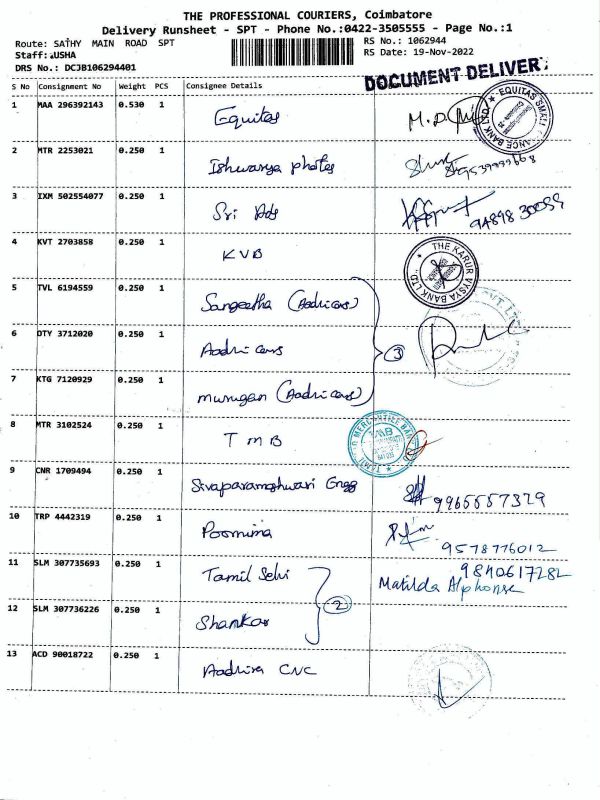 THE PROFESSIONAL COURIERS, Coimbatore
Delivery Runsheet - SPT - Phone No.:0422-3505555 - Page No.:1
Route: SATHY MAIN ROAD SPT
RS No.: 1062944
Staff: USHA
RS Date: 19-Nov-2022
DRS No.: DCJB106294401
DOCUMENT DELIVER
S No Consignment No Weight PCS Consignee Details
1 MAA 296392143 0.530 1 Equitas M.D.
EQUITAS SMALL FINANCE BANK LTD
2 MTR 2253021 0.250 1 Ishwarya photos
3 IXM 502554077 0.250 1 Sri Ads 94898 30059
4 KVT 2703858 0.250 1 KVB
THE KARUR VYSYA BANK LTD
5 TVL 6194559 0.250 1 Sangeetha (Aadhi cars)
6 DTY 3712020 0.250 1 Aadhi cars 3
7 KTG 7120929 0.250 1 Murugan (Aadhi cars)
8 MTR 3102524 0.250 1 TMB
TAMILNAD MERCANTILE BANK
9 CNR 1709494 0.250 1 Sivaparameshwari Engg 9965557329
10 TRP 4442319 0.250 1 Poornima 9578776012
11 SLM 307735693 0.250 1 Tamil Selvi 9840617282
Matilda Alphonse
12 SLM 307736226 0.250 1 Shankar 2
13 ACD 90018722 0.250 1 Aadhira CNC